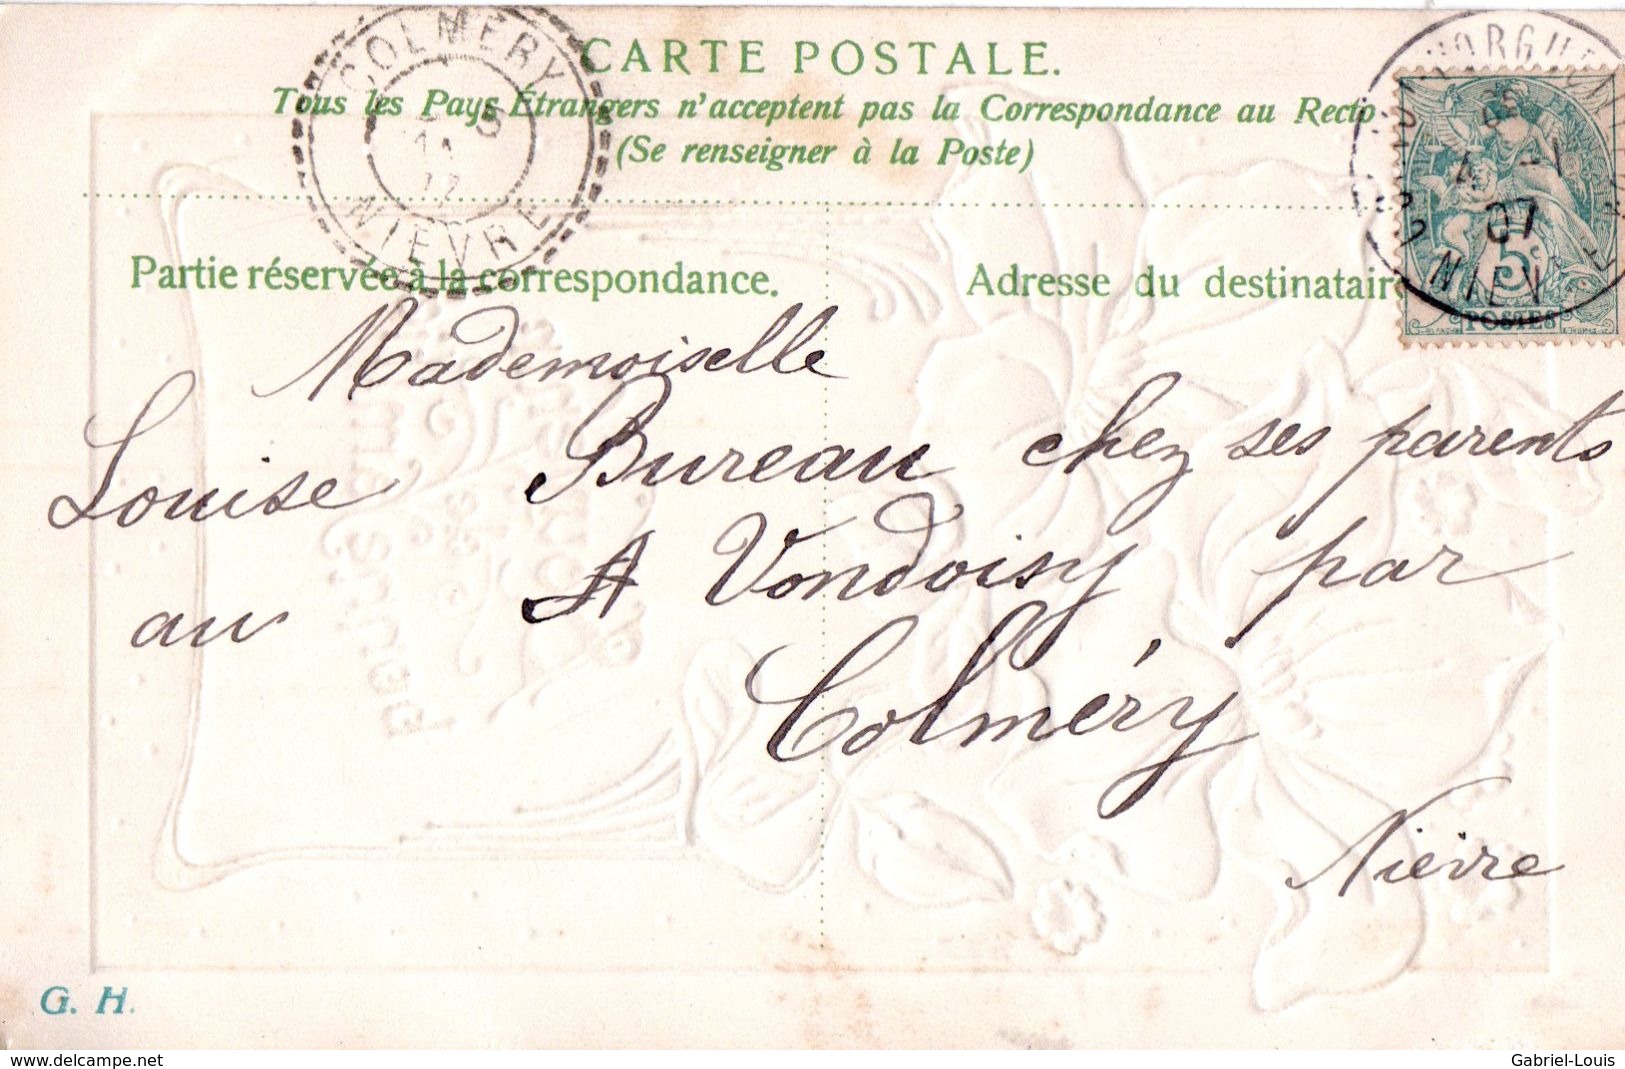 CARTE POSTALE.
Tous les Pays Étrangers n'acceptent pas la Correspondance au Recto
(Se renseigner à la Poste)
COLMERY
NIEVRE
Partie réservée à la correspondance.
Adresse du destinataire
07
5c
POSTES
Mademoiselle
Louise Bureau chez ses parents
au A Vondoisy par
Colméry
Nièvre
G. H.
delcampe.net
Gabriel-Louis